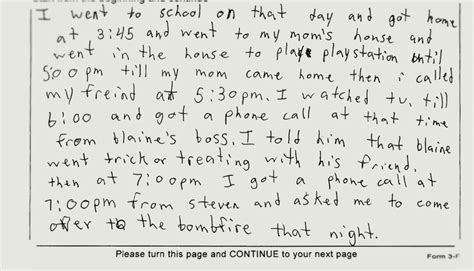 I went to school on that day and got home
at 3:45 and went to my mom's house and
went in the house to play playstation until
5:00pm till my mom came home then i called
my freind at 5:30pm. I watched tv. till
6:00 and got a phone call at that time
from blaine's boss. I told him that blaine
went trick or treating with his friend.
then at 7:00pm I got a phone call at
7:00pm from steven and asked me to come
over to the bombfire that night.
Please turn this page and CONTINUE to your next page
Form 3-F